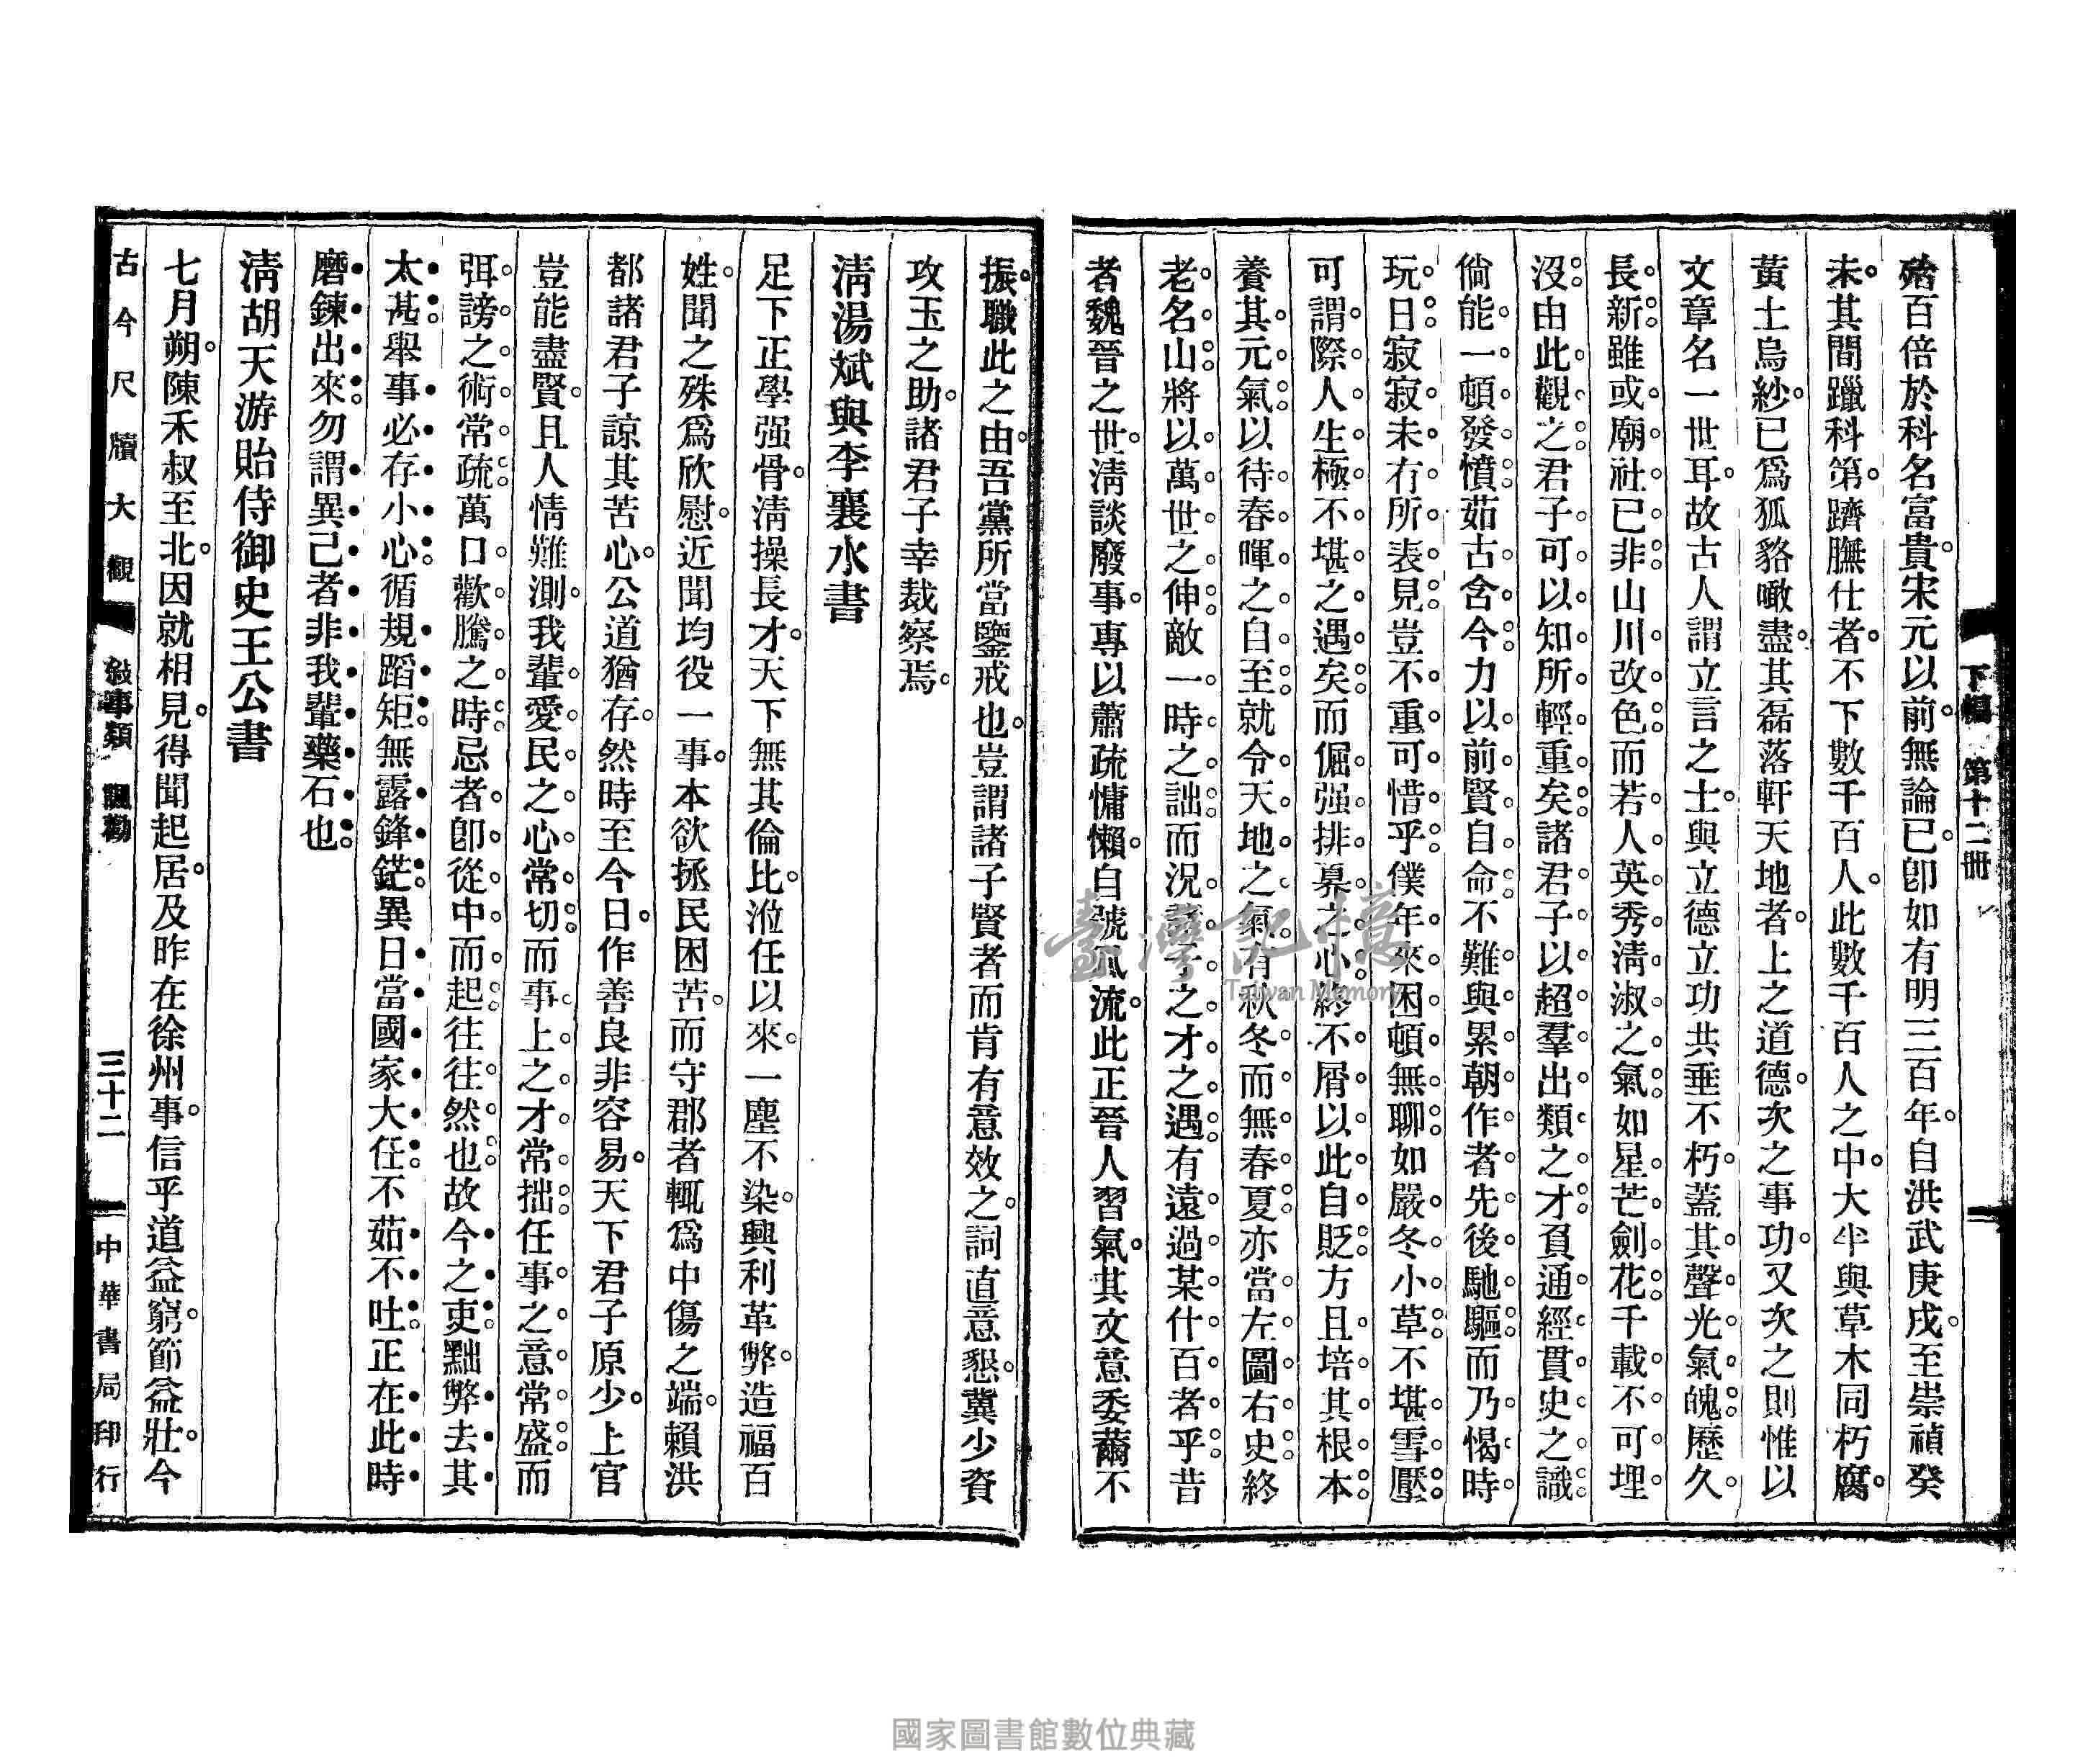 下編　第十二冊
殆百倍於科名富貴。宋元以前無論已。卽如有明三百年。自洪武庚戌。至崇禎癸
未。其間躐科第。躋膴仕者。不下數千百人。此數千百人之中。大半與草木同朽腐。
黃土烏紗。已爲狐貉噉盡。其磊落軒天地者。上之道德。次之事功。又次之則惟以
文章名一世耳。故古人謂立言之士。與立德立功共垂不朽。蓋其聲光氣魄。歷久
長新。雖或廟社已非。山川改色。而若人英秀清淑之氣。如星芒劍花。千載不可埋
沒。由此觀之。君子可以知所輕重矣。諸君子以超羣出類之才。負通經貫史之識。
倘能一頓發憤。茹古含今。力以前賢自命。不難與累朝作者先後馳驅。而乃愒時
玩日。寂寂未有所表見。豈不重可惜乎。僕年來困頓無聊。如嚴冬小草。不堪雪壓。
可謂際人生極不堪之遇矣。而倔强排奡之心。終不屑以此自貶。方且培其根本。
養其元氣。以待春暉之自至。就令天地之氣。有秋冬而無春夏。亦當左圖右史。終
老名山。將以萬世之伸。敵一時之詘。而況諸子之才之遇。有遠過某什百者乎。昔
者魏晉之世。清談廢事。專以蕭疏慵懶。自號風流。此正晉人習氣。其文意委薾不
振。職此之由。吾黨所當鑒戒也。豈謂諸子賢者而肯有意效之。詞直意懇。冀少資
攻玉之助。諸君子幸裁察焉。
清湯斌與李襄水書
足下正學强骨。清操長才。天下無其倫比。涖任以來。一塵不染。興利革弊。造福百
姓。聞之殊爲欣慰。近聞均役一事。本欲拯民困苦。而守郡者輒爲中傷之端。賴洪
都諸君子諒其苦心。公道猶存。然時至今日。作善良非容易。天下君子原少。上官
豈能盡賢。且人情難測。我輩愛民之心常切。而事上之才常拙。任事之意常盛。而
弭謗之術常疏。萬口歡騰之時。忌者卽從中而起。往往然也。故今之吏。黜弊去其
太甚。舉事必存小心。循規蹈矩。無露鋒鋩。異日當國家大任。不茹不吐。正在此時
磨鍊出來。勿謂異己者非我輩藥石也。
清胡天游貽侍御史王公書
七月朔。陳禾叔至北。因就相見。得聞起居。及昨在徐州事。信乎道益窮。節益壯。今
古今尺牘大觀　敍事類　諷勸　三十二　中華書局印行
臺灣記憶
Taiwan Memory
國家圖書館數位典藏